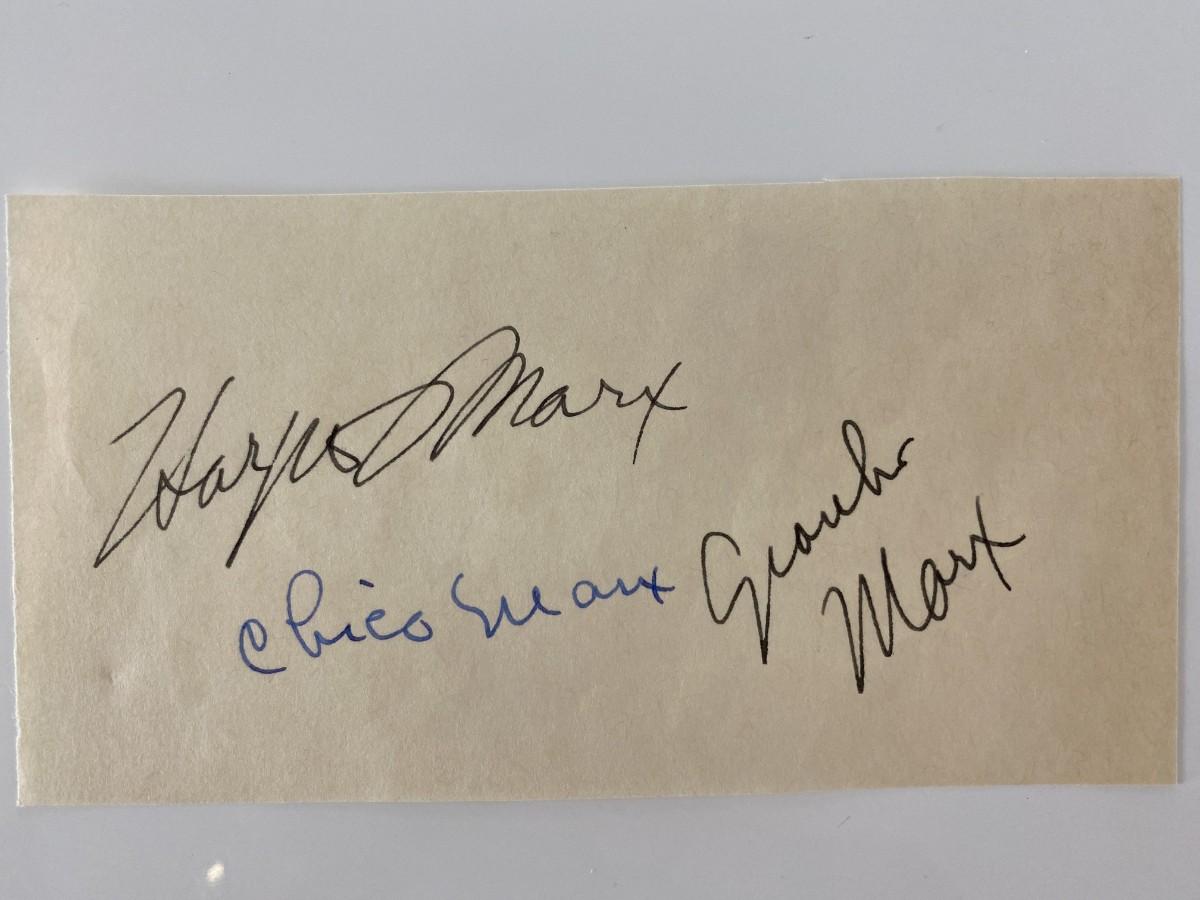 Harpo Marx
Chico Marx
Groucho
Marx